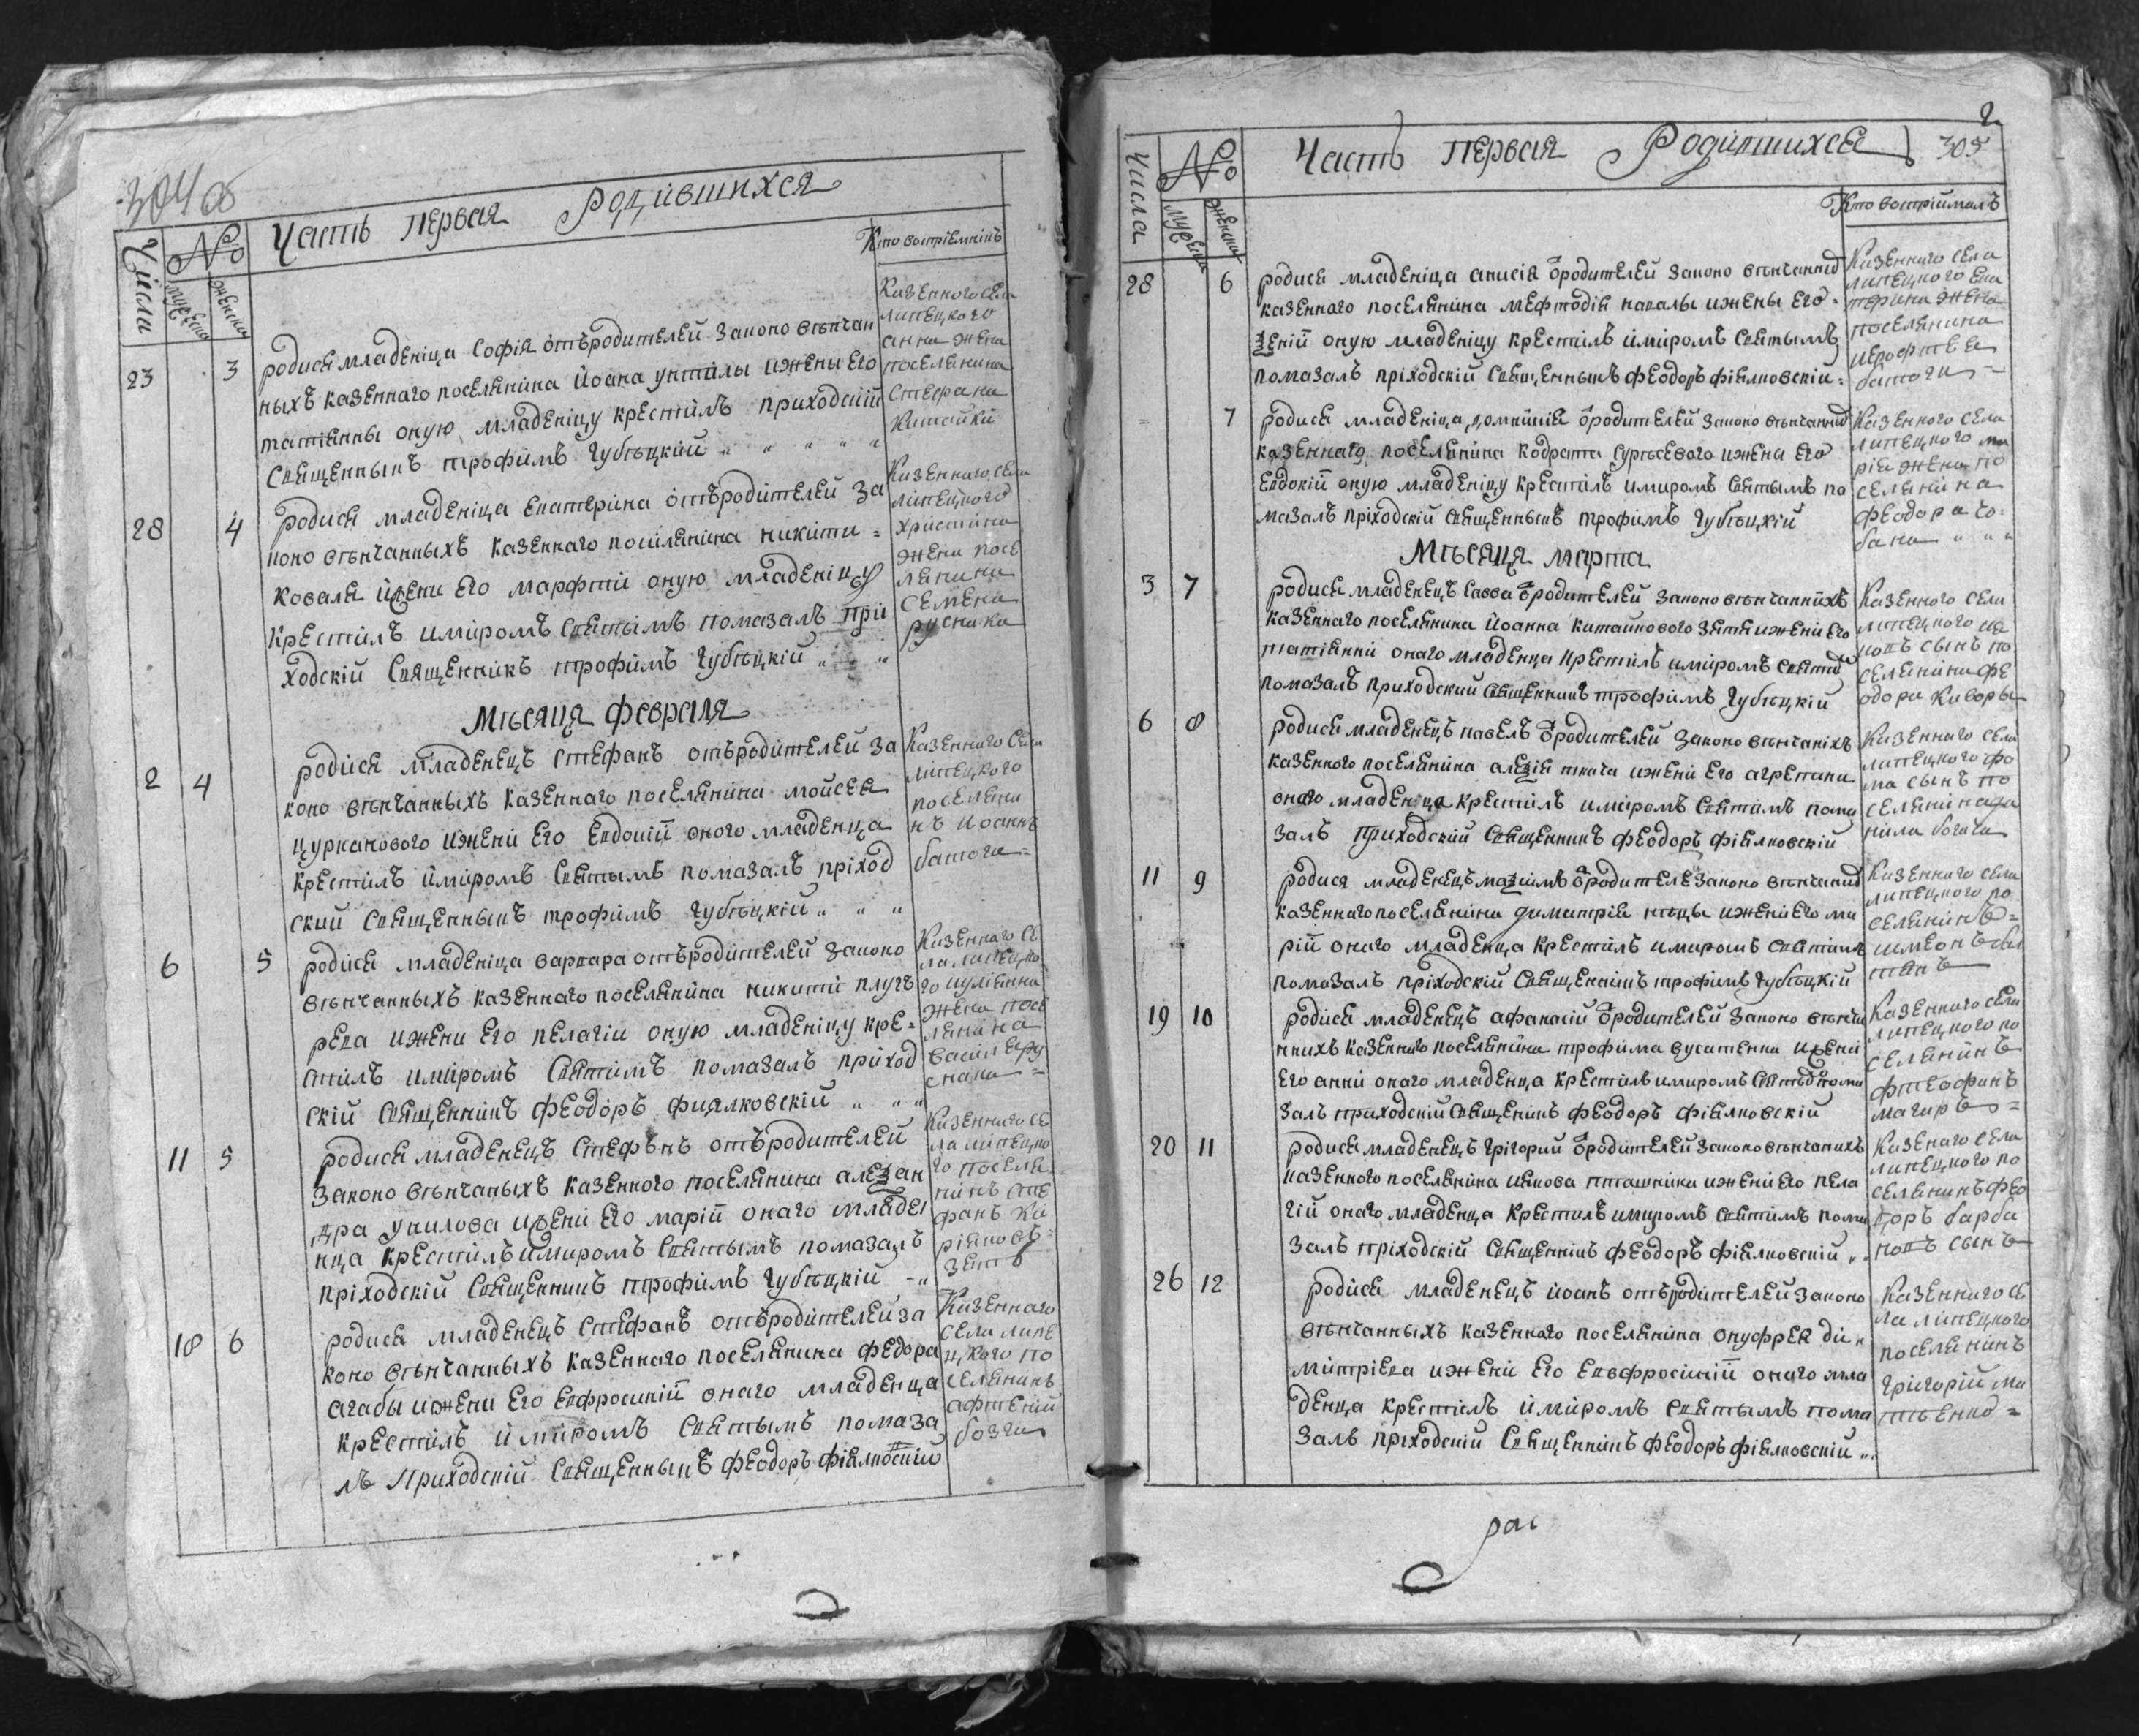 304 об
Часть первая Родившихся
Числа
№
мужеска
женска
Кто воспріемникъ
23 3 родися младеница Софія отъ родителей законо венчан
ныхъ казеннаго поселянина Иоана унтилы ижены его
татіянны оную младеницу крестилъ приходскій
Священныкъ трофимъ Губѣцкій
Казенного села
липецкого
анна жена
поселянина
Стефана
Китайкй
28 4 родися младеница Екатерина отъ родителей за
коно вѣнчанныхъ казеннаго посилянина никити =
Коваля ижени его марфтй оную младеницу
Крестилъ имиромъ Святымъ помазалъ при
ходскій Священникъ трофимъ Губѣцкій
Казенного села
липецкого
христина
жена посе
лянина
Семена
руснака
Мѣсяця февраля
2 4 родися младенецъ Стефанъ отъ родителей за
коно вѣнчанныхъ казеннаго поселянина мойсея
цурканового ижени его Евдокій оного младенца
Крестилъ имиромъ Святымъ помазалъ приход
ский Священныкъ трофимъ Губѣцкій
Казенного села
липецкого
поселяни
нъ Иоаннъ
батога =
6 5 родися младеница варвара отъ родителей законо
вѣнчанныхъ казеннаго поселянина никити плугъ
рева ижени его пелагіи оную младеницу кре=
стилъ имиромъ Святимъ помазалъ приход
скій Священникъ феодоръ фиялковскій
Казенного се
ла липецко
го иуліянна
жена посе
лянина
васил я ру
снака =
11 5 родися младенецъ Стефанъ отъ родителей
законо вѣнчаныхъ казенного поселянина алеѯан
дра унилова ижени его марій онаго младе
нца крестилъ имиромъ Святымъ помазалъ
приходскій Священникъ трофимъ Губѣцкій
Казенного се
ла липецко
го поселя
нинъ сте
фанъ Ки
ріяковъ
зять
18 6 родися младенецъ Стефанъ отъ родителей за
коно вѣнчанныхъ казеннаго поселянина федора
агабы ижени его Евфросиній онаго младенца
Крестилъ имиромъ Святымъ помаза
лъ Приходскій Священныкъ феодоръ фіялковскій
Казеннаго
села липе
цкого по
селянинъ
афтеній
бозга
2
305
Часть первая Родившихся
Числа
№
мужеска
женска
Кто воспріималъ
28 6 родися младеница анисія ѿ родителей законо вѣнчанныхъ
казеннаго поселянина мефтодія напалы ижены его =
ѯеній оную младеницу крестилъ имиромъ Святымъ
помазалъ приходскій Священныкъ феодоръ фіялковскіи =
Казенного села
липецкого Ека
терина жена
поселянина
иерофтея
батоги =
7 родися младеница домникія ѿ родителей законо вѣнчанныхъ
казеннаго поселянина Кодрата Сургѣевого ижены его
Евдокій оную младеницу крестилъ имиромъ Святымъ по
мазалъ приходскій Священныкъ трофимъ Губѣцкій
Казенного села
липецкого ма
рія жена по
селянина
феодора чо=
бана
Мѣсяця марта
3 7 родися младенецъ Савва ѿ родителей законо вѣнчаннихъ
казеннаго поселянина Иоанна Китайкового зятя ижени его
татіянни онаго младенца крестилъ имиромъ Святимъ
помазалъ приходский Священникъ трофимъ Губѣцкій
Казенного села
липецкого ия
ковъ сынъ по
селянина фе
одора Каворы
6 8 родися младенецъ павелъ ѿ родителей законо вѣнчаніхъ
казенного поселянина алеѯія ткача ижени его агрепини
оного младенца крестилъ имиромъ Святимъ пома
залъ приходский Священникъ феодоръ фіялковскій
Казенного села
липецкого фо
ма сынъ по
селянина да
нила богача
11 9 родися младенецъ маѯимъ ѿ родителей законо вѣнчаныхъ
казенного поселянина димитрія нецы ижени его ма
рій оного младенца крестилъ имиромъ Святимъ
помазалъ приходскій Священникъ трофимъ Губѣцкій
Казенного села
липецкого по
селянинъ =
симеонъ
19 10 родися младенецъ афанасій ѿ родителей законо вѣнча
ннихъ казенного поселянина трофима вусатенка ижени
его анни оного младенца крестилъ имиромъ Святымъ пома
залъ приходскій Священикъ феодоръ фіялковскій
Казенного села
липецкого по
селянинъ
фтеофанъ
магиръ =
20 11 родися младенецъ Григорий ѿ родителей законо вѣнчаныхъ
казенного поселянина иякова пташника ижени его пела
гій оного младенца крестилъ имиромъ Святимъ пома
залъ приходскій Священнікъ феодоръ фіялковскій
Казенаго села
липецкого по
селянинъ фео
доръ барба
ковъ сынъ
26 12 родися младенецъ иоанъ отъ родителей законо
вѣнчанныхъ казенного поселянина онуфрея ди
митріева ижени его Евфросиній оного мла
денца крестилъ имиромъ Святымъ пома
залъ приходскій Священнікъ феодоръ фіялковскій
Казенного се
ла липецкого
поселянинъ
Григорій ма
тѣенко =
рас